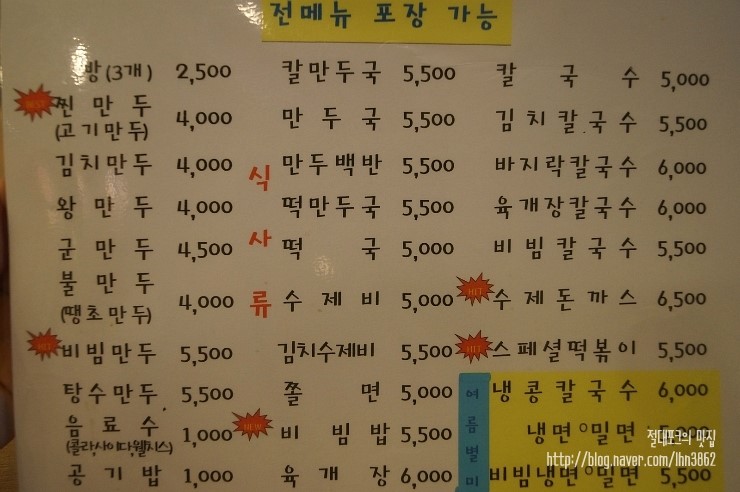 전메뉴 포장 가능
방(3개) 2,500
BEST 찐만두 4,000
(고기만두)
김치만두 4,000
왕만두 4,000
군만두 4,500
불만두 4,000
(땡초만두)
HOT 비빔만두 5,500
탕수만두 5,500
음료수 1,000
(콜라,사이다,웰치스)
공기밥 1,000
식사류
칼만두국 5,500
만두국 5,500
만두백반 5,500
떡만두국 5,500
떡국 5,000
수제비 5,000
김치수제비 5,500
쫄면 5,000
NEW 비빔밥 5,500
육개장 6,000
칼국수 5,000
김치칼국수 5,500
바지락칼국수 6,000
육개장칼국수 6,000
비빔칼국수 5,500
HOT 수제돈까스 6,500
HOT 스페셜떡볶이 5,500
여름별미
냉콩칼국수 6,000
냉면ㅇ밀면 5,000
비빔냉면ㅇ밀면 5,500
절대포크의 맛집
http://blog.naver.com/lhn3862